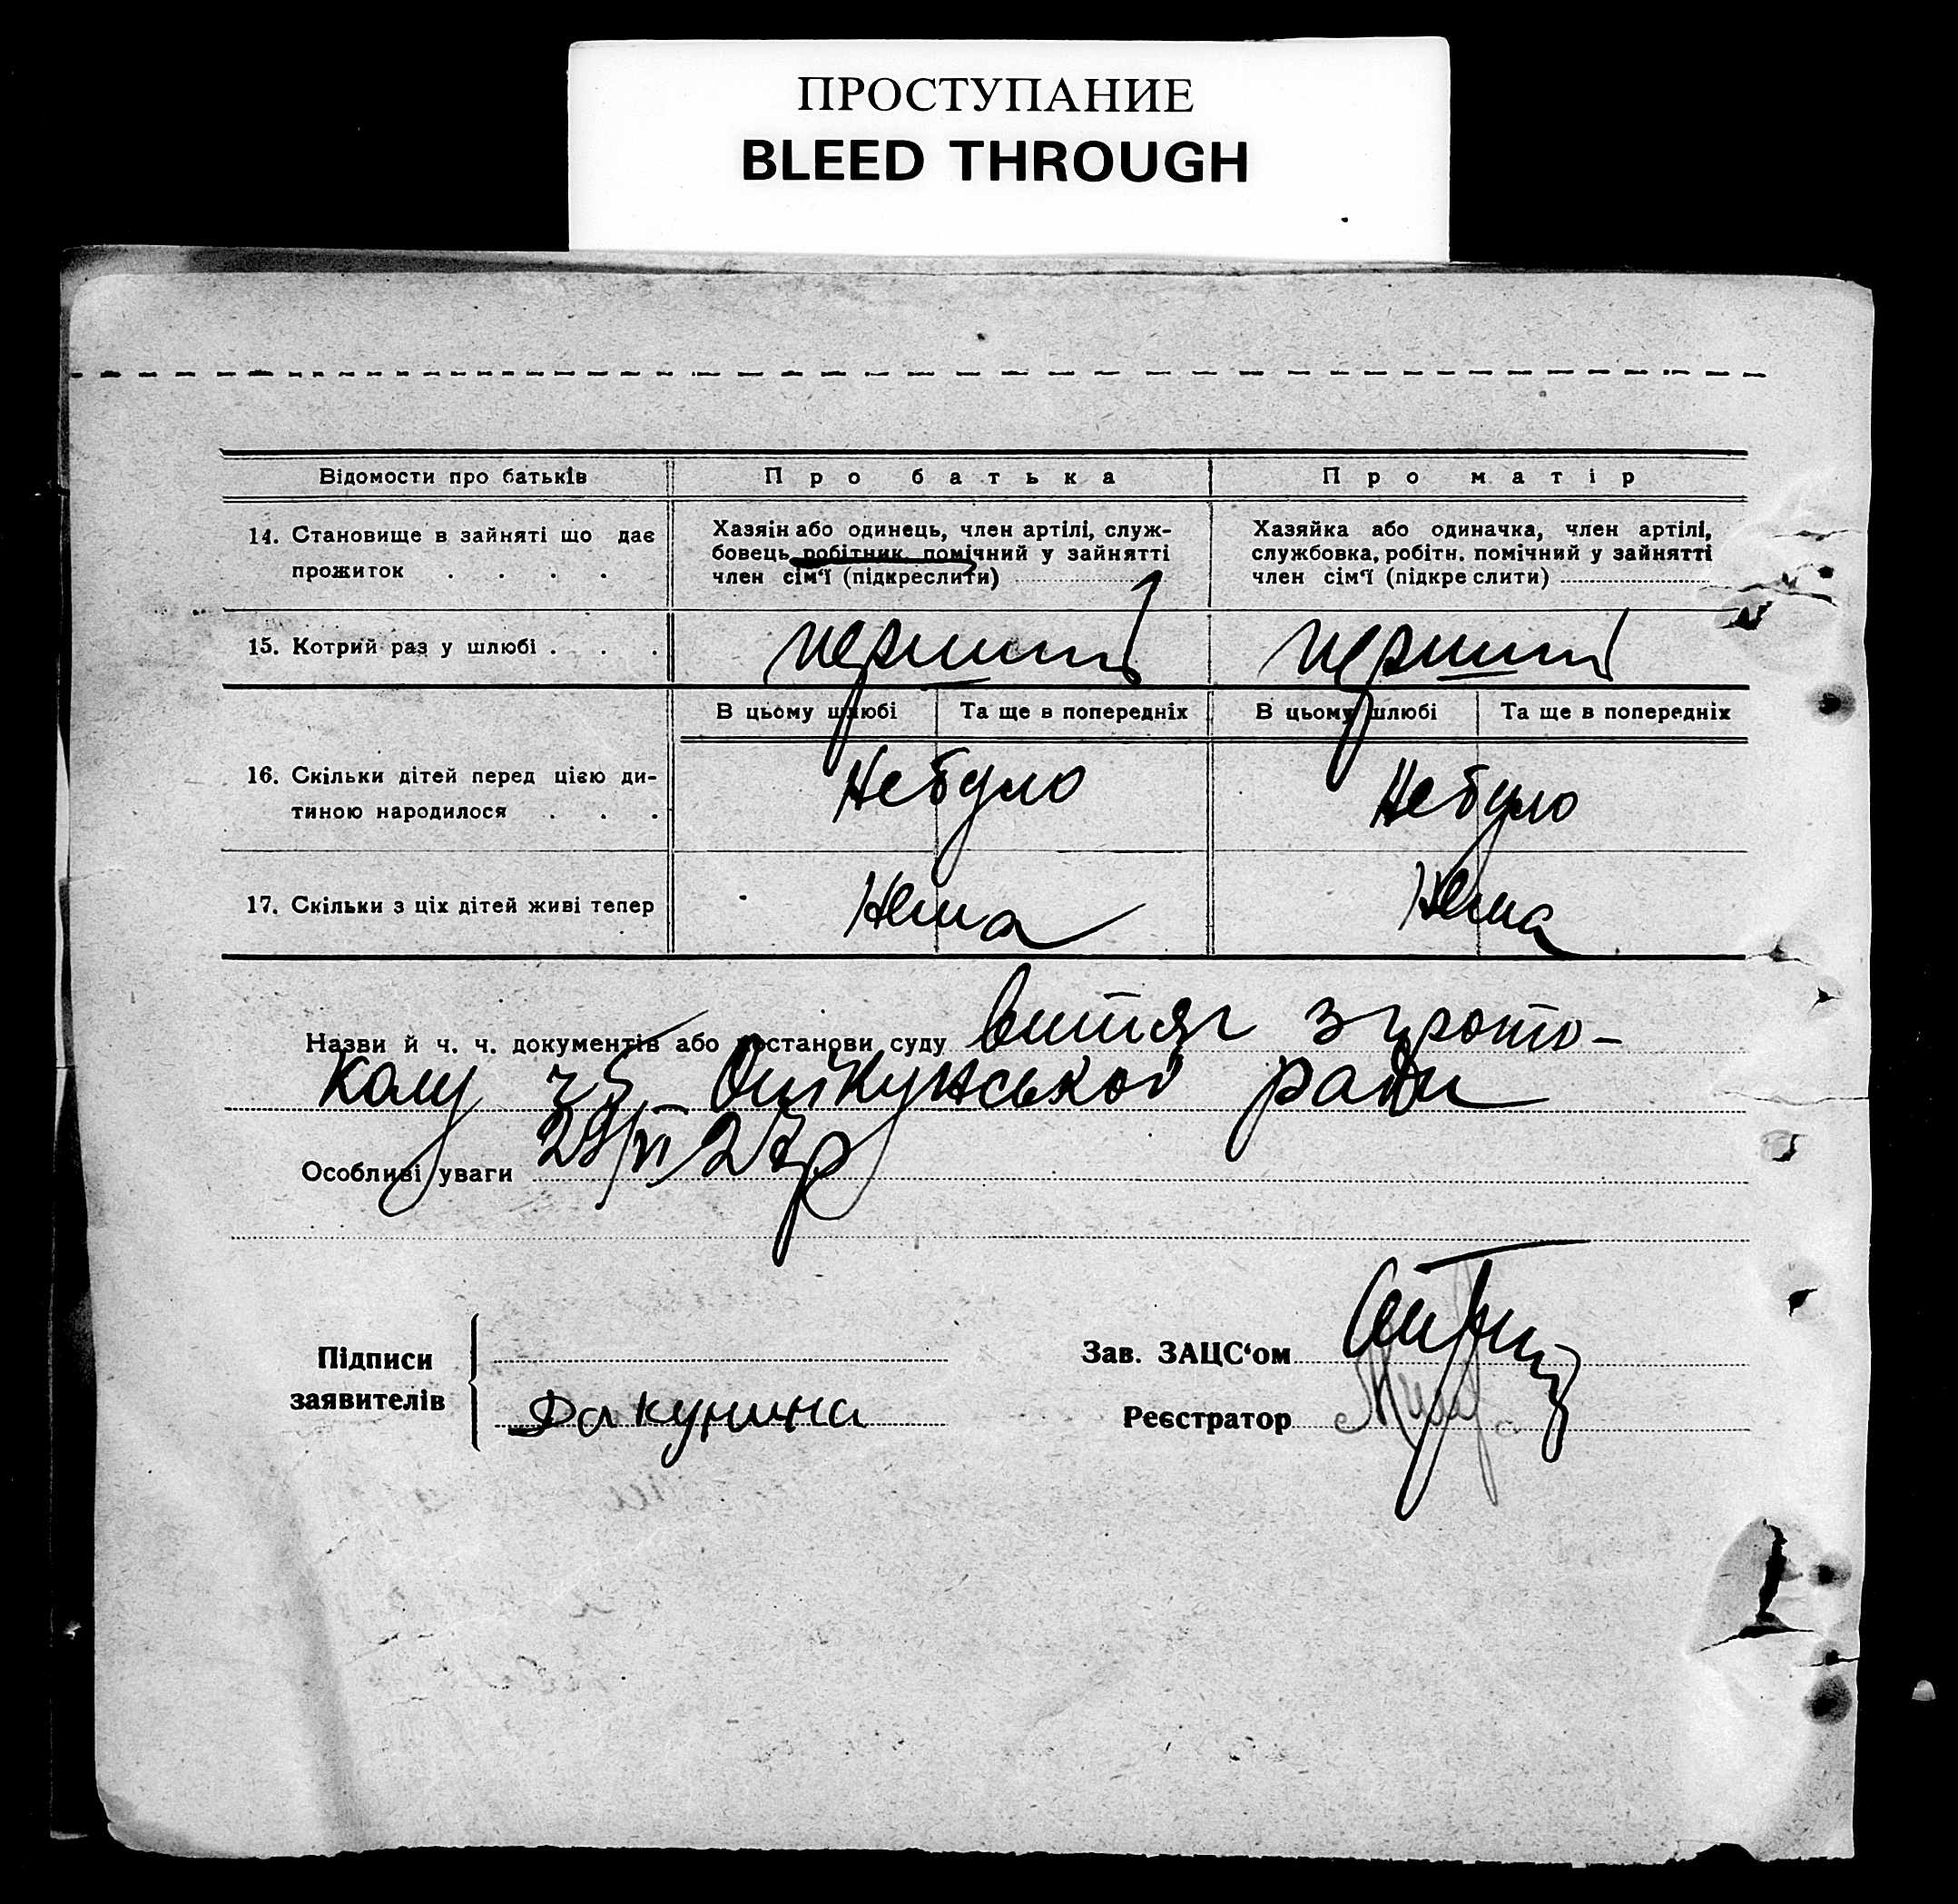 ПРОСТУПАНИЕ
BLEED THROUGH
Відомости про батьків
Про батька
Про матір
14. Становище в зайняті що дає
прожиток . . . .
Хазяін або одинець, член артілі, служ-
бовець, робітник, помічний у зайнятті
член сім'ї (підкреслити)
Хазяйка або одиначка, член артілі,
службовка, робітн. помічний у зайнятті
член сім'ї (підкреслити)
15. Котрий раз у шлюбі . . .
перший
перший
В цьому шлюбі
Та ще в попередніх
В цьому шлюбі
Та ще в попередніх
16. Скільки дітей перед цією ди-
тиною народилося . . .
Небуло
Небуло
17. Скільки з ціх дітей живі тепер
Нема
Нема
Назви й ч. ч. документів або постанови суду витяг з прото-
колу ради
29/VI 27р
Особливі уваги
Підписи
заявителів
Дакунина
Зав. ЗАЦС'ом
Реєстратор